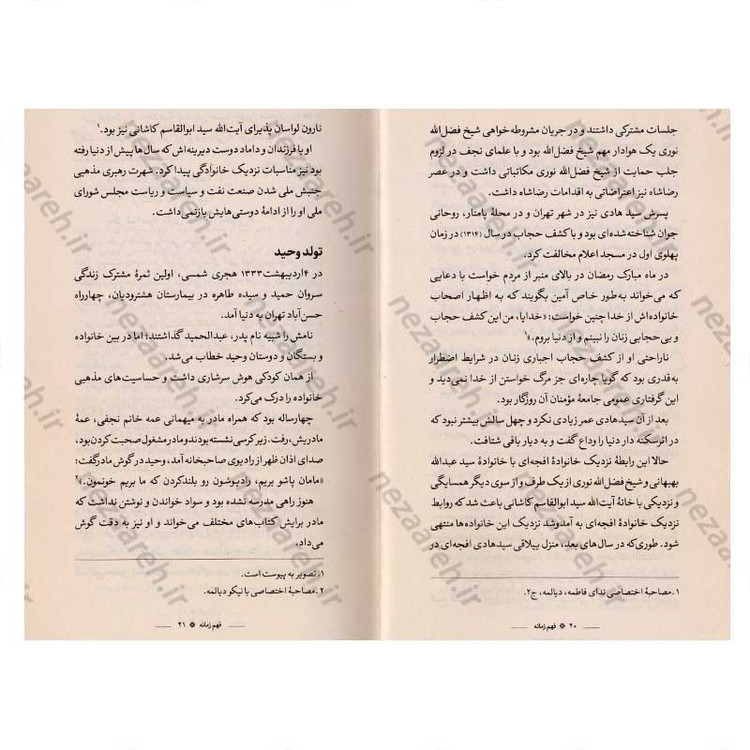 جلسات مشترکی داشتند و در جریان مشروطه خواهی شیخ فضل‌الله
نوری یک هوادار مهم شیخ فضل‌الله بود و با علمای نجف در لزوم
جلب حمایت از شیخ فضل‌الله نوری مکاتباتی داشت و در عصر
رضاشاه نیز اعتراضاتی به اقدامات رضاشاه داشت.
پسرش سید هادی نیز در شهر تهران و در محلهٔ پامنار، روحانی
جوان شناخته‌شده‌ای بود و با کشف حجاب در سال (۱۳۱۴) در زمان
پهلوی اول در مسجد اعلام مخالفت کرد.
در ماه مبارک رمضان در بالای منبر از مردم خواست با دعایی
که می‌خواند به‌طور خاص آمین بگویند که به اظهار اصحاب
خانواده‌اش از خدا چنین خواست: «خدایا، من این کشف حجاب
و بی‌حجابی زنان را نبینم و از دنیا بروم.»۱
ناراحتی او از کشف حجاب اجباری زنان در شرایط اضطرار
به‌قدری بود که گویا چاره‌ای جز مرگ خواستن از خدا نمی‌دید و
این گرفتاری عمومی جامعهٔ مؤمنان آن روزگار بود.
بعد از آن سیدهادی عمر زیادی نکرد و چهل سالش بیشتر نبود که
در اثر سکته دار دنیا را وداع گفت و به دیار باقی شتافت.
حالا این رابطهٔ نزدیک خانوادهٔ افجه‌ای با خانوادهٔ سید عبدالله
بهبهانی و شیخ فضل‌الله نوری از یک طرف و از سوی دیگر همسایگی
و نزدیکی با خانهٔ آیت‌الله سید ابوالقاسم کاشانی باعث شد که روابط
نزدیک خانوادهٔ افجه‌ای به آمدوشد نزدیک این خانواده‌ها منتهی
شود. طوری‌که در سال‌های بعد، منزل ییلاقی سیدهادی افجه‌ای در
۱. مصاحبهٔ اختصاصی ندای فاطمه، دیالمه، ج۲.
۲۰ ❋ فهم زمانه
نارون لواسان پذیرای آیت‌الله سید ابوالقاسم کاشانی نیز بود.۱
او با فرزندان و داماد دوست دیرینه‌اش که سال‌ها پیش از دنیا رفته
بود نیز مناسبات نزدیک خانوادگی پیدا کرد. شهرت رهبری مذهبی
جنبش ملی شدن صنعت نفت و سیاست و ریاست مجلس شورای
ملی او را از ادامهٔ دوستی‌هایش بازنمی‌داشت.
تولد وحید
در ۴اردیبهشت۱۳۳۳ هجری شمسی، اولین ثمرهٔ مشترک زندگی
سروان حمید و سیده طاهره در بیمارستان هشترودیان، چهارراه
حسن‌آباد تهران به دنیا آمد.
نامش را شبیه نام پدر، عبدالحمید گذاشتند؛ اما در بین خانواده
و بستگان و دوستان وحید خطاب می‌شد.
از همان کودکی هوش سرشاری داشت و حساسیت‌های مذهبی
خانواده را درک می‌کرد.
چهارساله بود که همراه مادر به میهمانی عمه خانم نجفی، عمهٔ
مادریش، رفت. زیر کرسی نشسته بودند و مادر مشغول صحبت کردن بود،
صدای اذان ظهر از رادیوی صاحبخانه آمد، وحید در گوش مادر گفت:
«مامان پاشو بریم، رادیوشون رو بلندکردن که ما بریم خونمون.»۲
هنوز راهی مدرسه نشده بود و سواد خواندن و نوشتن نداشت که
مادر برایش کتاب‌های مختلف می‌خواند و او نیز به دقت گوش
می‌داد.
۱. تصویر به پیوست است.
۲. مصاحبهٔ اختصاصی با نیکو دیالمه.
فهم زمانه ❋ ۲۱
nezaareh.ir